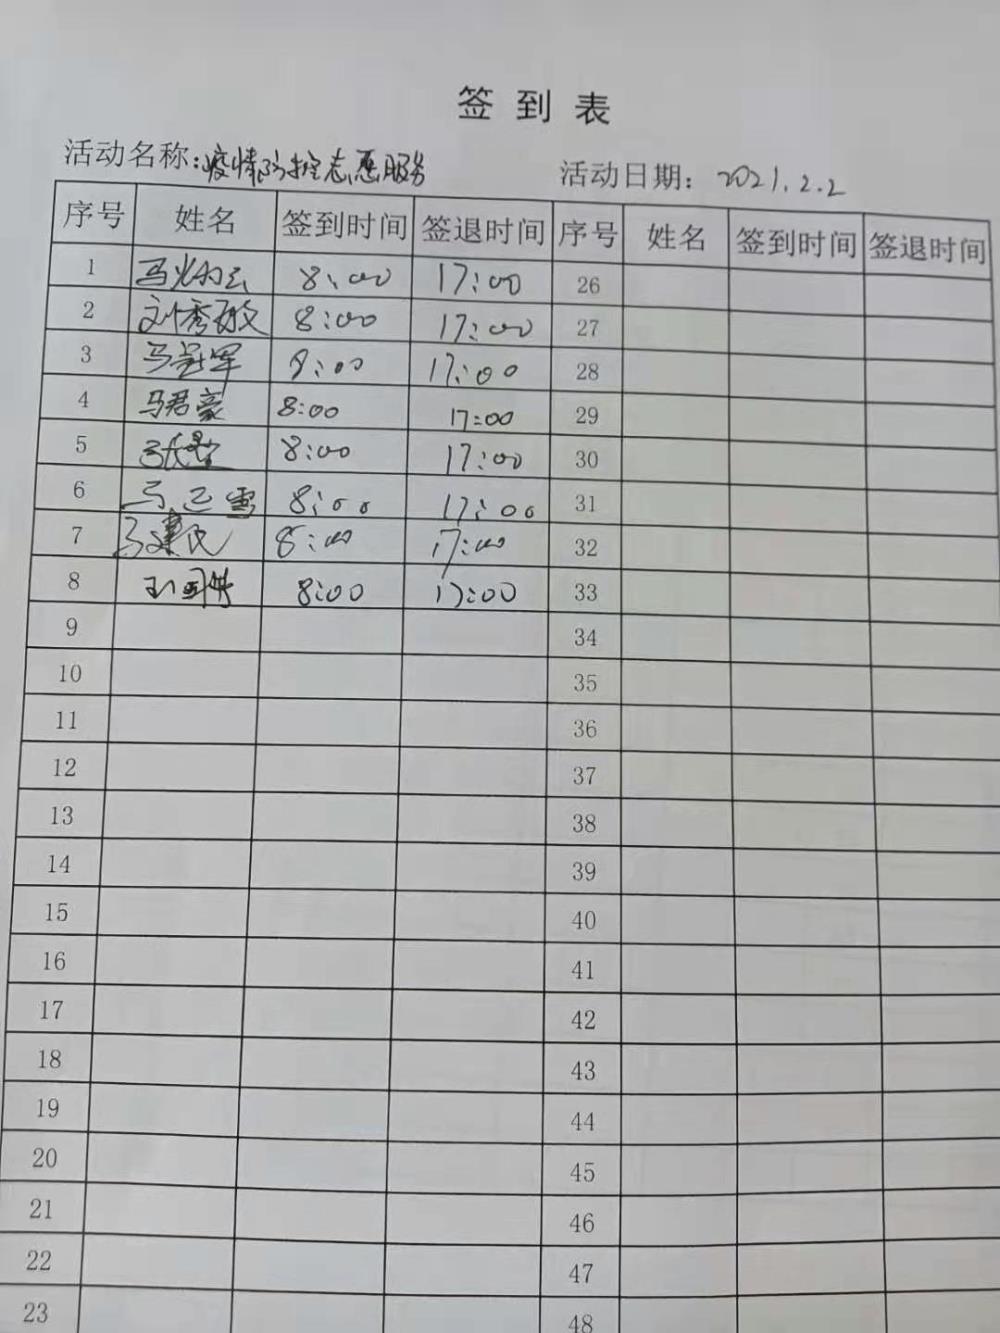 签到表
活动名称:疫情防控志愿服务 活动日期: 2021.2.2
序号 姓名 签到时间 签退时间 序号 姓名 签到时间 签退时间
1 8:00 17:00 26
2 刘秀敏 8:00 17:00 27
3 马冠军 8:00 17:00 28
4 马君豪 8:00 17:00 29
5 8:00 17:00 30
6 8:00 17:00 31
7 马建民 8:00 17:00 32
8 8:00 17:00 33
9 34
10 35
11 36
12 37
13 38
14 39
15 40
16 41
17 42
18 43
19 44
20 45
21 46
22 47
23 48